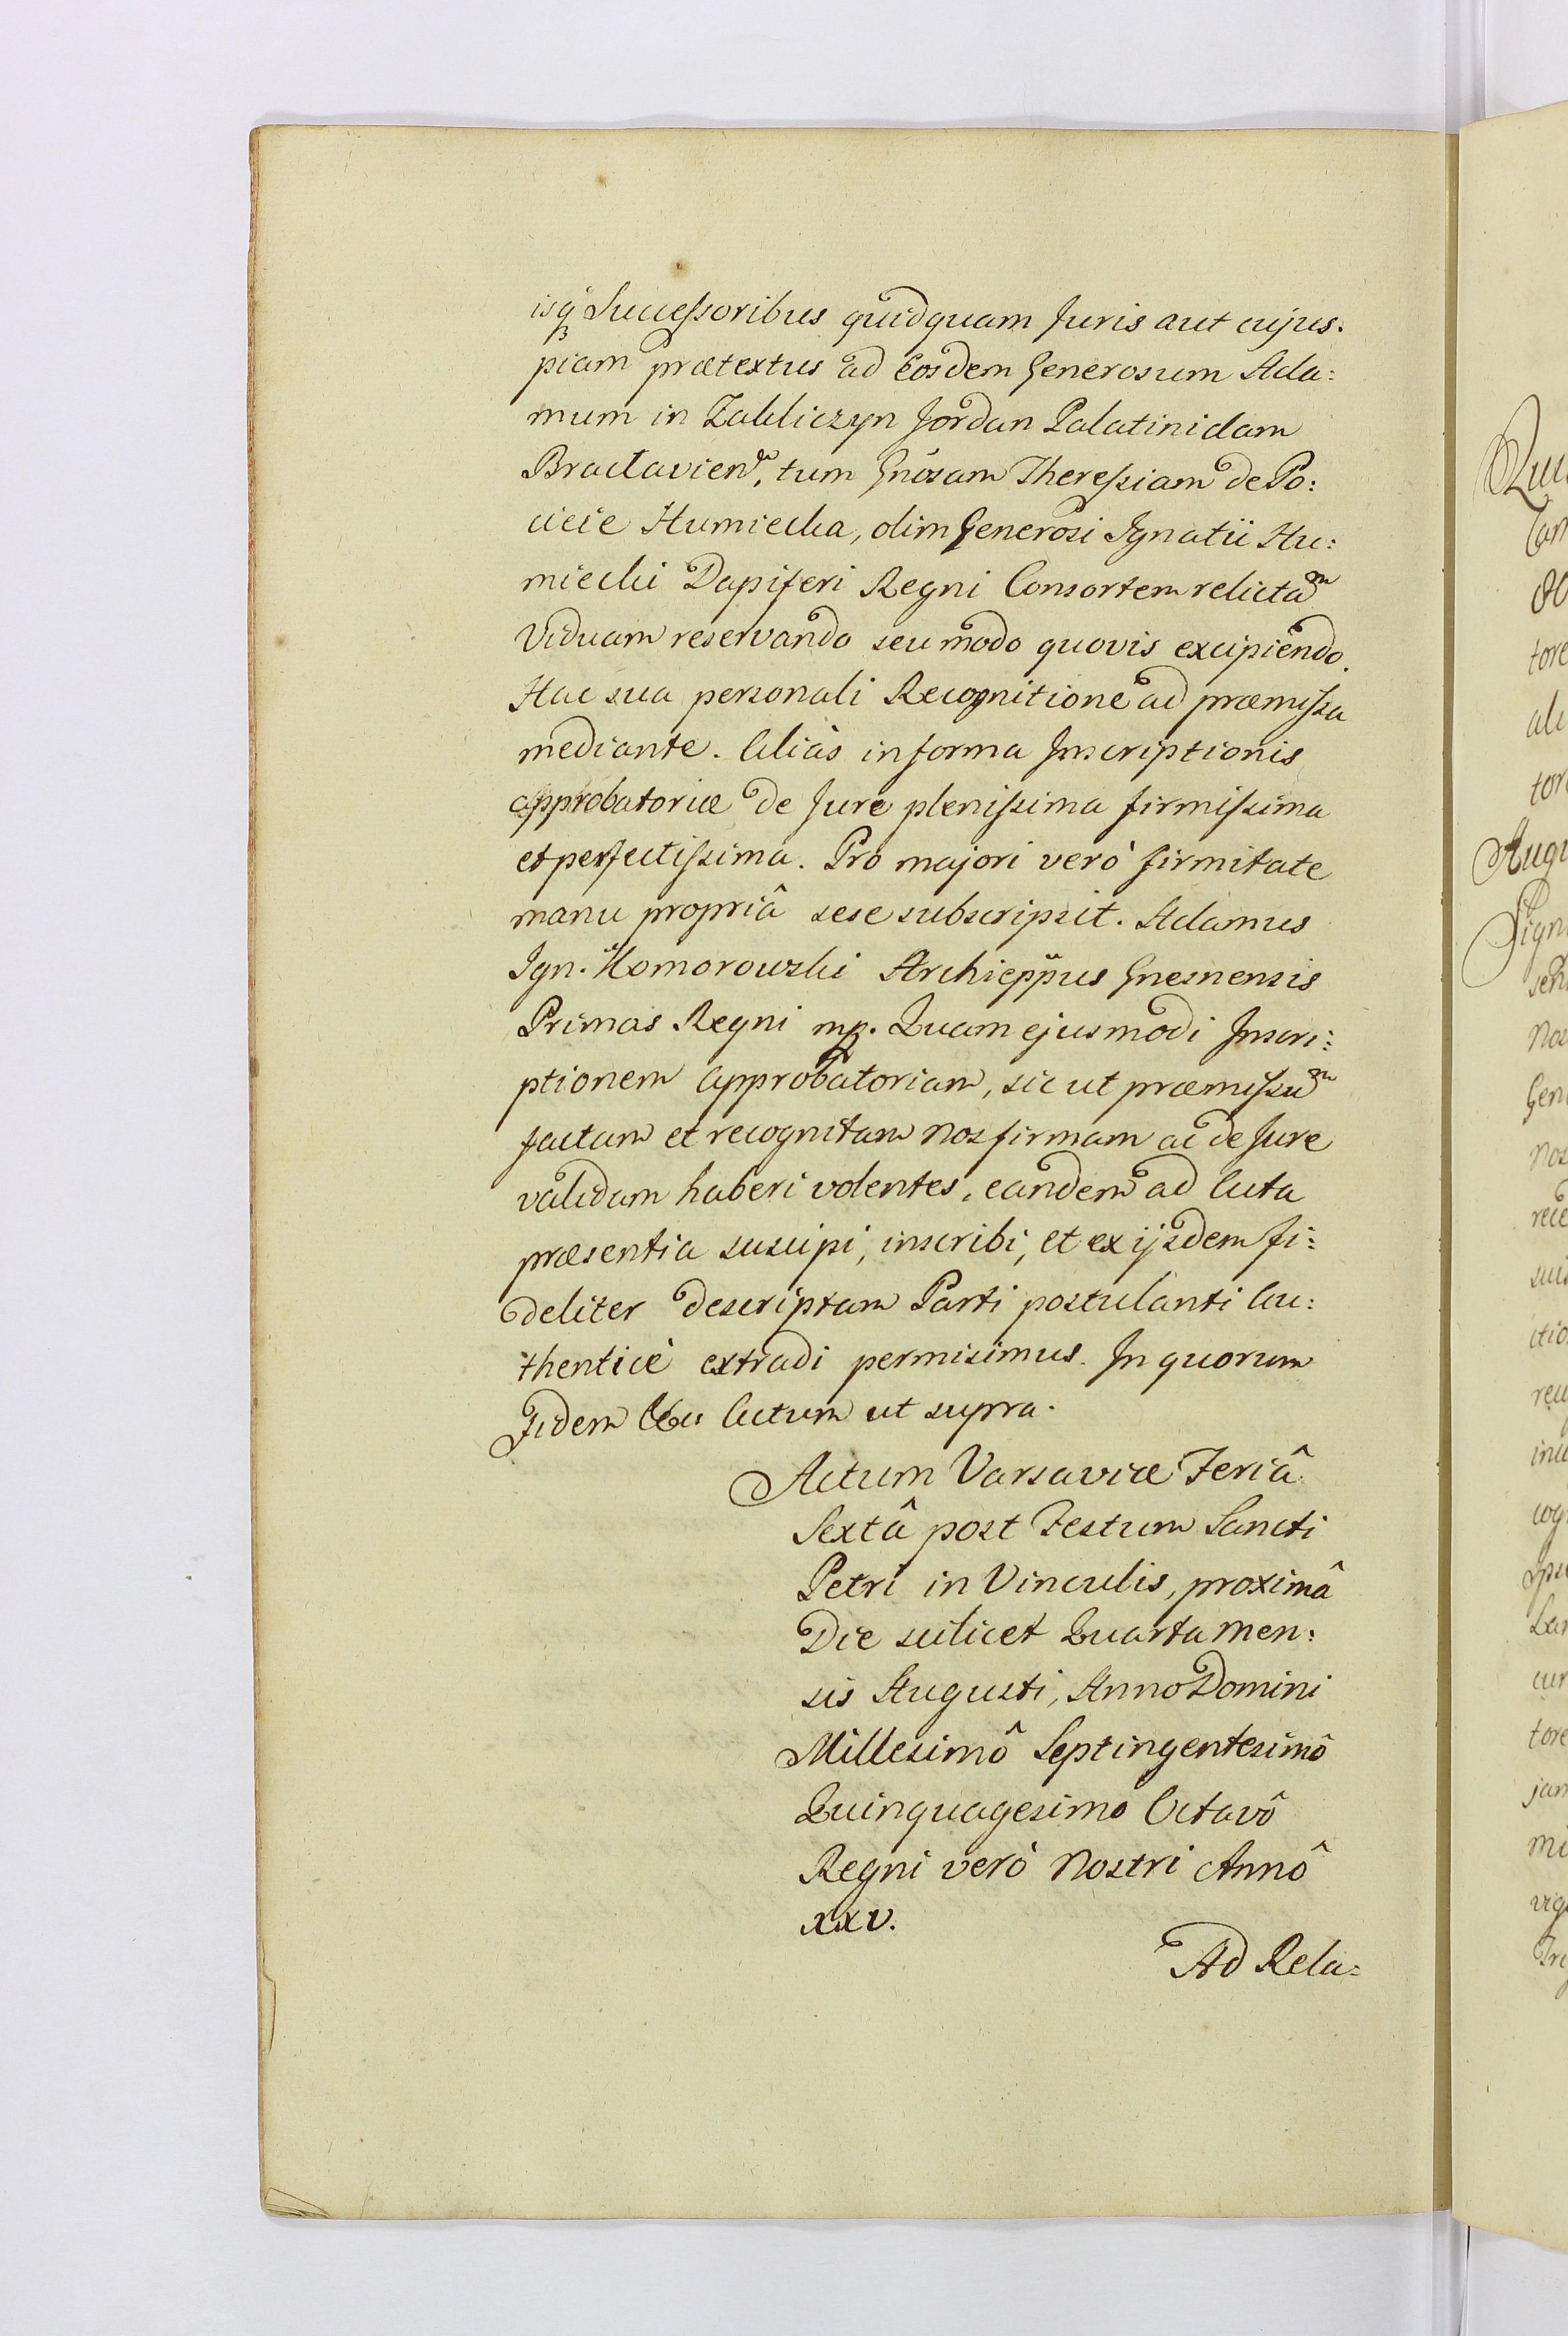 isq́₃ Successoribus quidquam Juris aut cujus.
piam prætextus ad Eosdem Generosum Ada:
mum in Zakliczyn Jordan Palatinidam
Braclavien, tum Gnosam Theressiam de Po:
cieie Humiecka, olim Generosi Ignatii Hu:
miecki Dapiferi Regni Consortem relictam
Viduam reservando seu modo quovis excipiendo.
Hac sua personali Recognitione ad præmissa
mediante. Aliàs in forma Inscriptionis
approbatoriæ de Jure plenissima firmissima
et perfectissima. Pro majori verò firmitate
manu propriâ sese subscripsit. Adamus
Ign. Komorowski Archieppus Gnesnensis
Primas Regni mp. Quam ejusmodi Inscri:
ptionem Approbatoriam, sic ut præmissum
factam et recognitam Nos firmam ac de Jure
validam haberi volentes, eandem ad Acta
præsentia suscipi, inscribi, et ex ijsdem fi:
deliter descriptam Parti postulanti Au:
thenticè extradi permisimus. In quorum
Fidem Actum ut supra.
Actum Varsaviæ Feriâ
Sextâ post Festum Sancti
Petri in Vinculis, proximâ
Die scilicet Quarta Men:
sis Augusti, Anno Domini
Millesimô Septingentesimô
Quinquagesimo Octavô
Regni verò Nostri Annô
XXV.
Ad Rela: